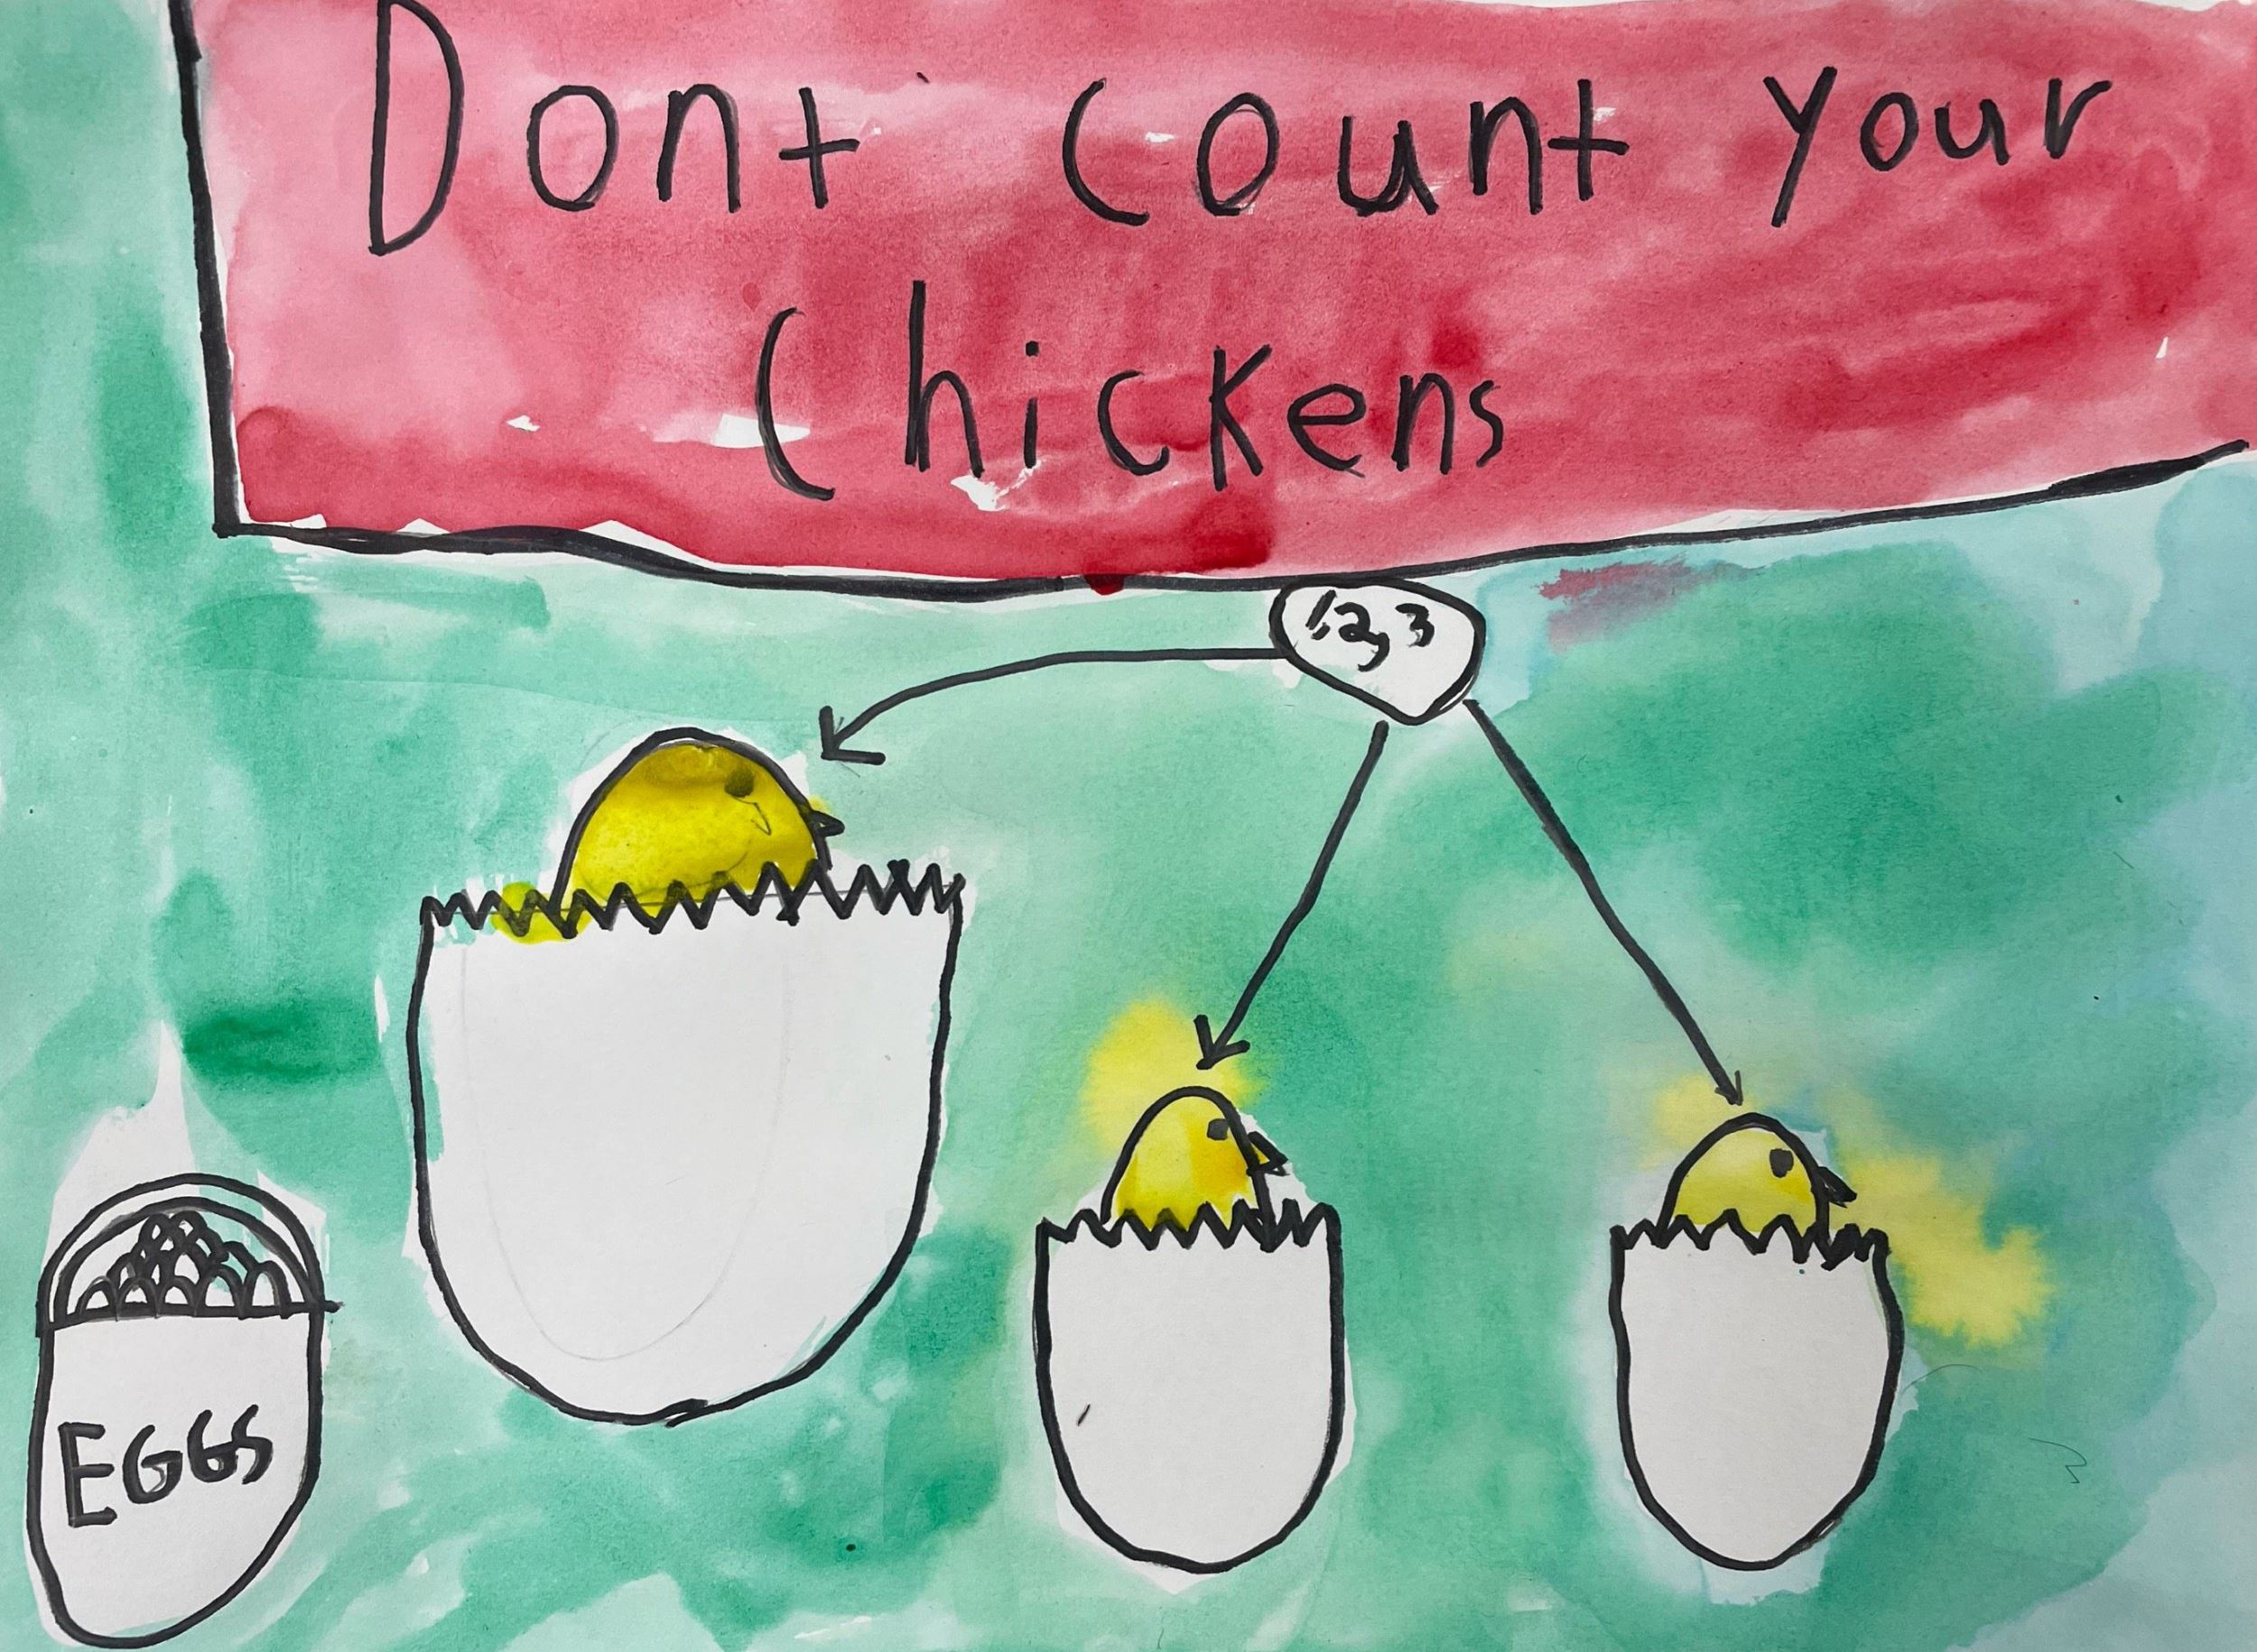 Dont count your
Chickens
1,2,3
EGGS